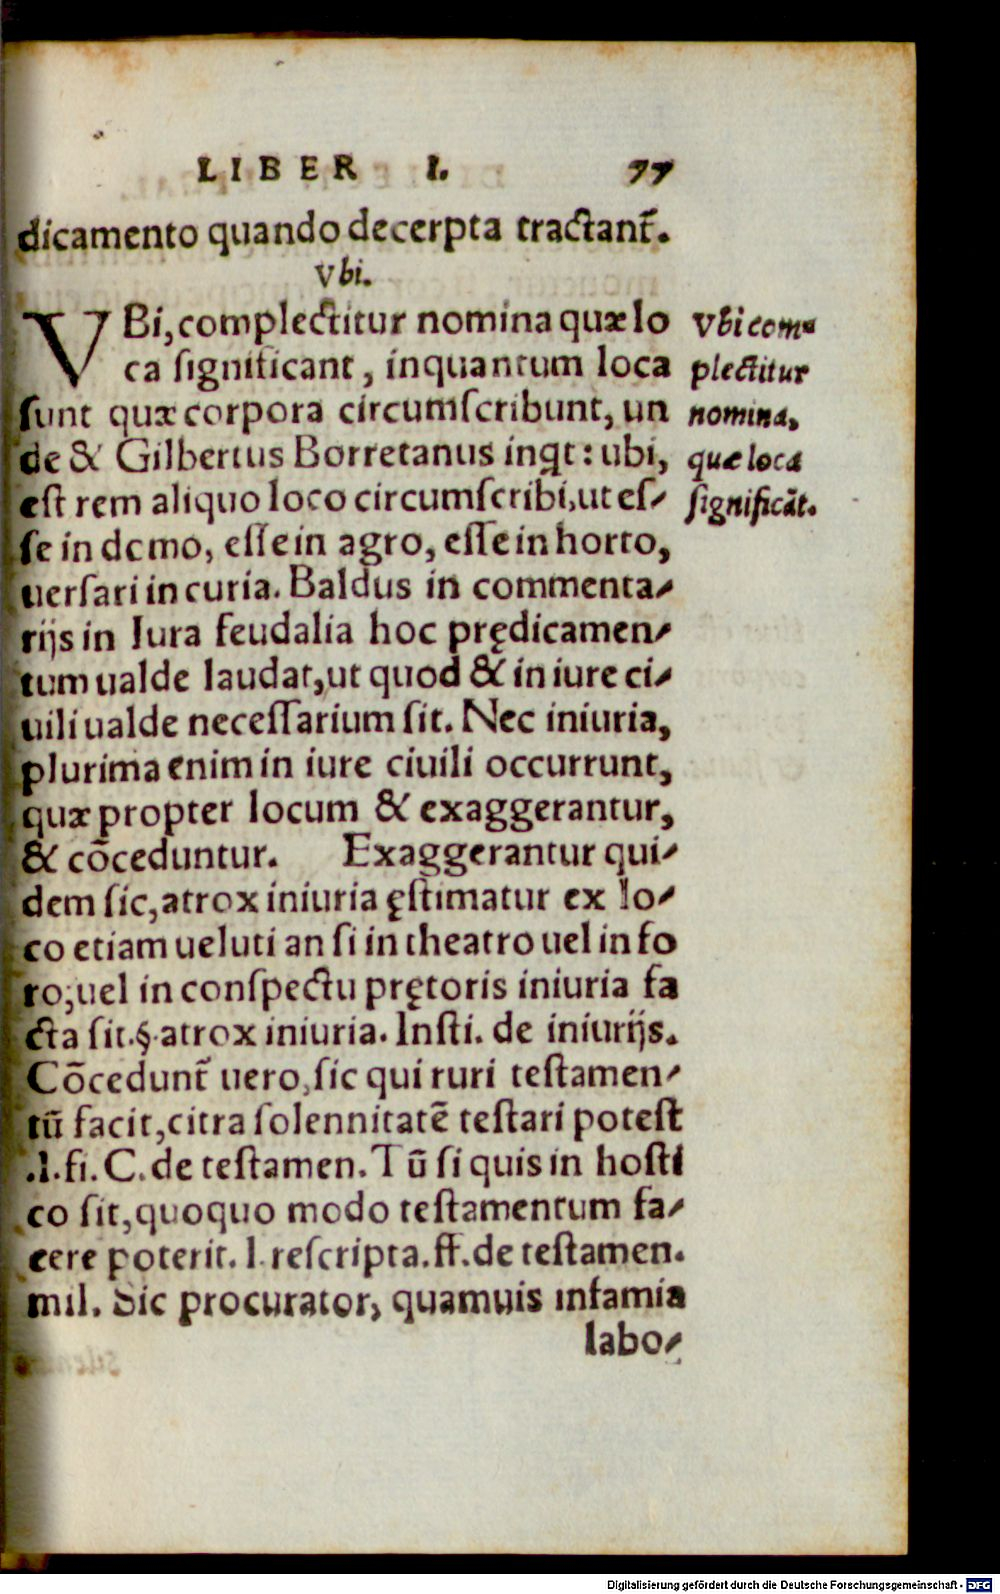 LIBER I. 77
dicamento quando decerpta tractant̃.
Vbi.
VBi, complectitur nomina quæ lo
ca ſignificant, inquantum loca
ſunt quæ corpora circumſcribunt, un
de & Gilbertus Borretanus inqt: ubi,
eſt rem aliquo loco circumſcribi, ut eſ-
ſe in domo, eſſe in agro, eſſe in horto,
uerſari in curia. Baldus in commenta-
rijs in Iura feudalia hoc prędicamen-
tum ualde laudat, ut quod & in iure ci-
uili ualde neceſſarium ſit. Nec iniuria,
plurima enim in iure ciuili occurrunt,
quæ propter locum & exaggerantur,
& cõceduntur. Exaggerantur qui-
dem ſic, atrox iniuria ęſtimatur ex lo-
co etiam ueluti an ſi in theatro uel in fo
ro, uel in conſpectu prętoris iniuria fa
cta ſit. §. atrox iniuria. Inſti. de iniurijs.
Cõcedunt̃ uero, ſic qui ruri teſtamen-
tũ facit, citra ſolennitatẽ teſtari poteſt
.l. fi. C. de teſtamen. Tũ ſi quis in hoſti
co ſit, quoquo modo teſtamentum fa-
cere poterit. l. reſcripta. ff. de teſtamen.
mil. Sic procurator, quamuis infamia
labo-
Vbi com-
plectitur
nomina,
quæ loca
ſignificãt.
Digitalisierung gefördert durch die Deutsche Forschungsgemeinschaft - DFG